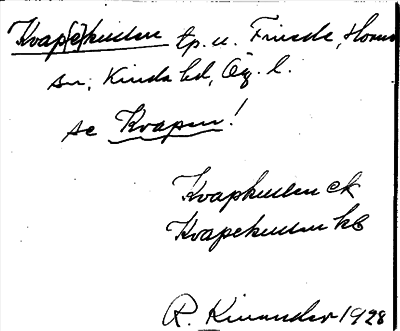 Kvap[e]kullen tp. u. Frisde, Horns
sn, Kinda hd, Ög. l.
se Kvapen!
Kvapkullen ek
Kvapekullen kb
R. Kinander 1928